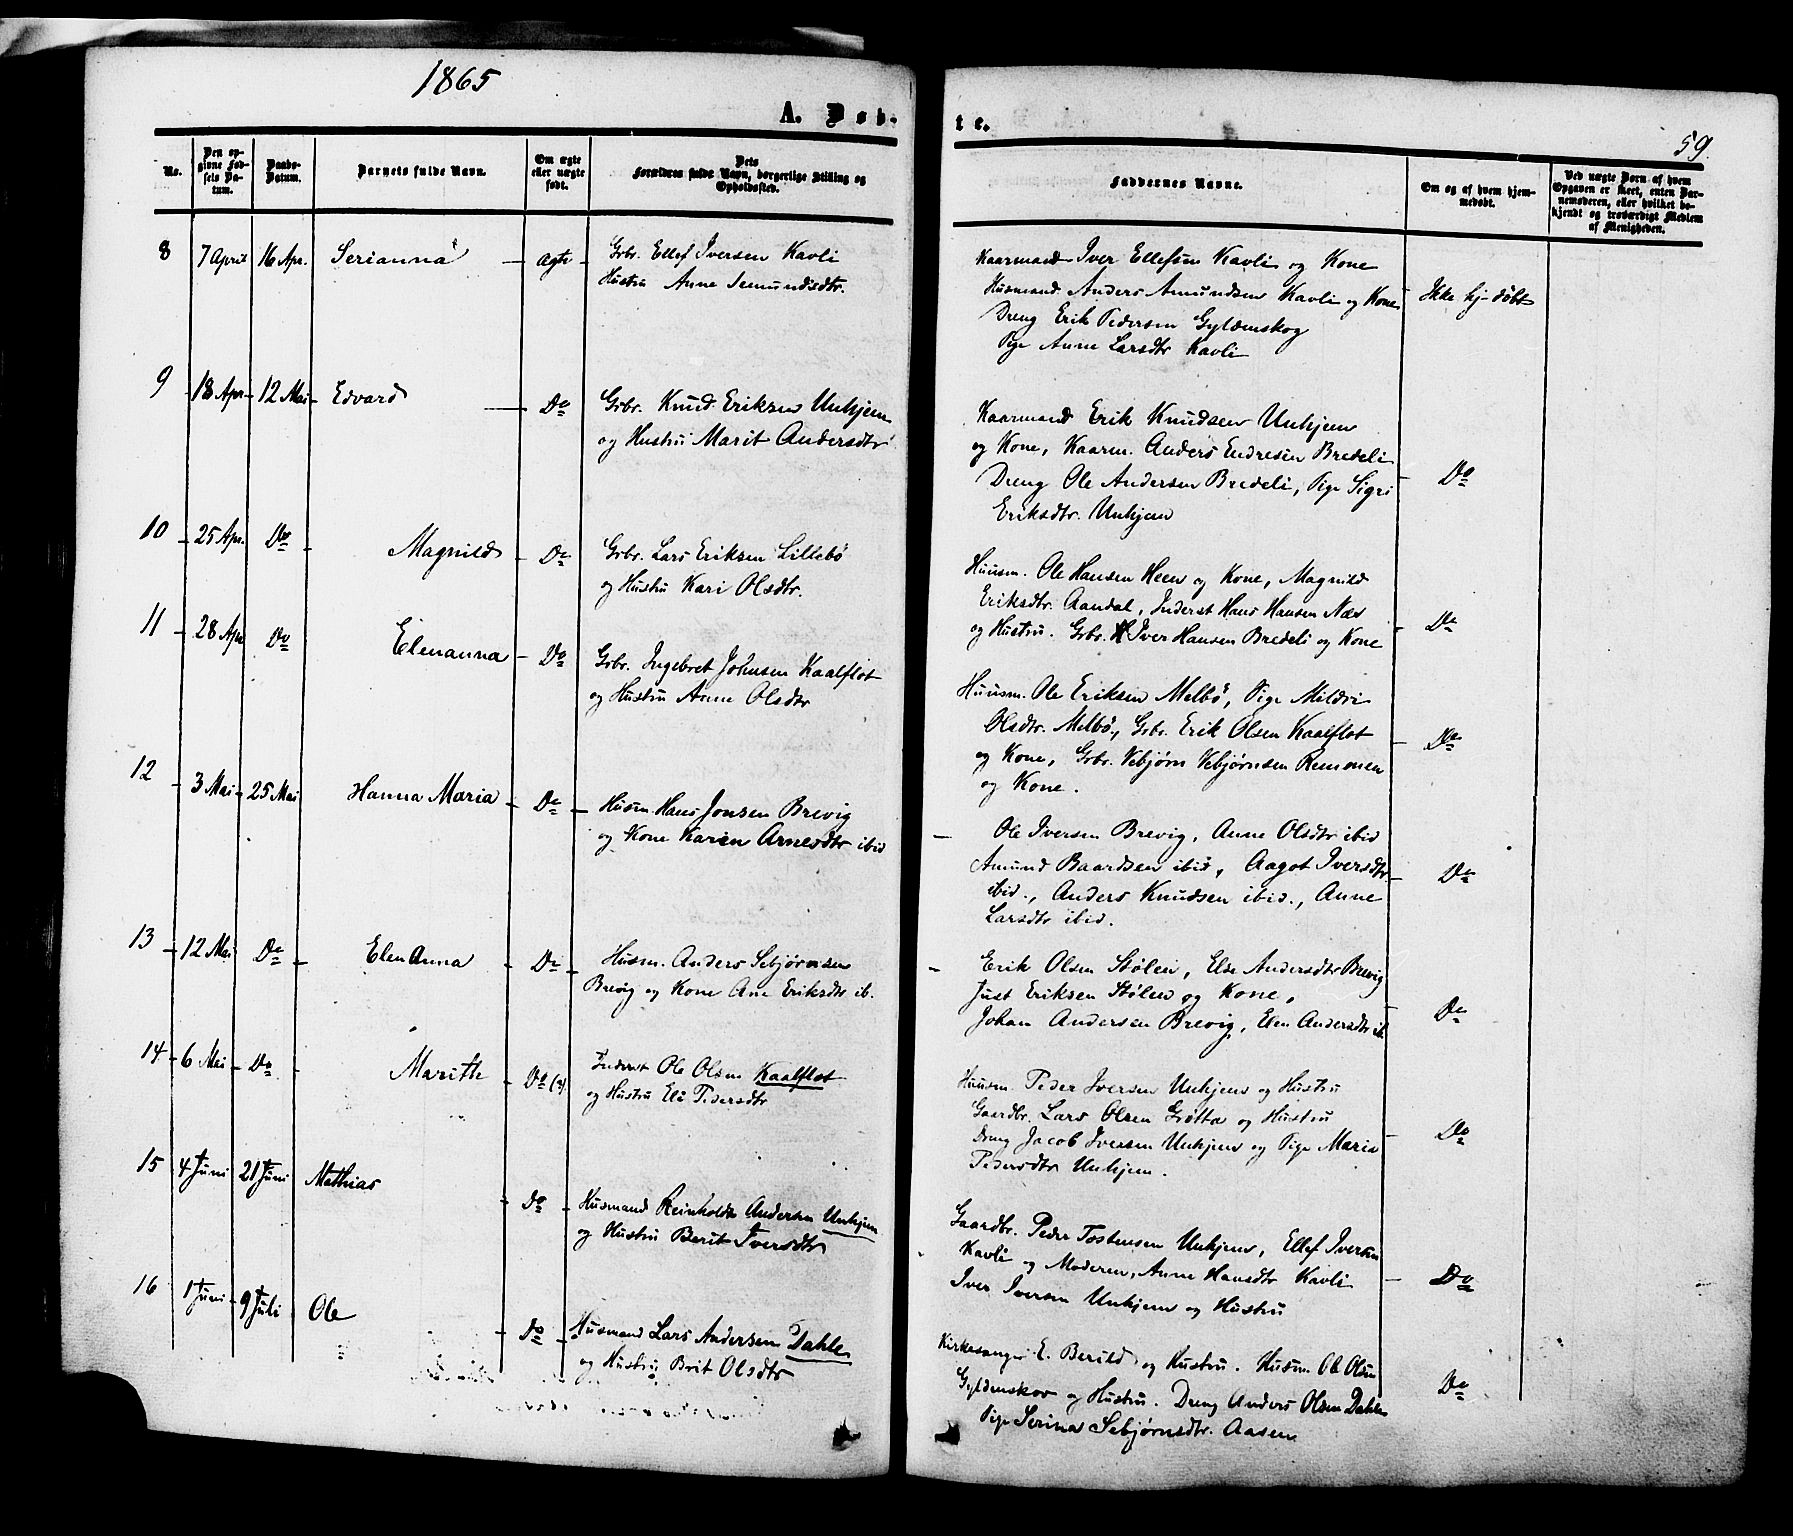 1865
A. Døb-
te.
59.
No.
Den op-
givne Fød-
sels Da-
tum.
Daabs-
Datum.
Barnets fulde Navn.
Om ægte
eller uægte
født.
Dets
Forældres fulde Navn, borgerlige Stilling og
Opholdssted.
Faddernes Navne.
Om og af hvem hjem-
medøbt.
Ved uægte Børn af hvem
Opgaven er skeet, enten Bar-
nemoderen, eller hvilket be-
kjendt og troværdigt Medlem
af Menigheden.
8 7 April 16 Apr. Serianna ægte Grbr. Ellef Iversen Kavli
Hustru Anne Semundsdtr.
Kaarmand Iver Ellefsen Kavli og Kone
Husmand Anders Amundsen Kavli og Kone
Dreng Erik Pedersen Gyldenskog
Pige Anne Larsdtr Kavli
Ikke hj-døbt
9 18 Apr 12 Mai Edvard Do Grbr. Knud Eriksen Unhjem
og Hustru Marit Andersdtr
Kaarmand Erik Knudsen Unhjem
og Kone, Kaarm. Anders Endresen Bredeli
Dreng Ole Andersen Bredeli, Pige Sigri
Eriksdtr. Unhjem
Do
10 25 Apr. Do Magnild Do Grbr. Lars Eriksen Lillebö
og Hustru Kari Olsdtr.
Huusm. Ole Hansen Heen og Kone, Magnild
Eriksdtr. Aandal, Inderst Hans Hansen Næs
og Hustru. Grbr. Iver Hansen Bredeli og Kone
Do
11 28 Apr Do Elenanna Do Grbr. Ingebret Johnsen Kaalflot
og Hustru Anne Olsdtr
Huusm. Ole Eriksen Melbö, Pige Mildri
Olsdtr. Melbö, Grbr. Erik Olsen Kaalflot
og Kone, Grbr. Vebjørn Vebjørnsen Remmen
og Kone.
Do
12 3 Mai 25 Mai Hanna Maria Do Husm. Hans Jonsen Brevig
og Kone Karen Arnesdtr ibid
Ole Iversen Brevig, Anne Olsdtr ibid
Amund Baardsen ibid, Aagot Iversdtr
ibid., Anders Knudsen ibid., Anne
Larsdtr ibid.
Do
13 12 Mai Do Elen Anna Do Husm. Anders Sebjørnsen
Brevig og Kone Ane Eriksdtr ib.
Erik Olsen Stølen, Else Andersdtr Brevig
Just Eriksen Stølen og Kone,
Johan Andersen Brevig, Elen Andersdtr ib.
Do
14 6 Mai Do Marith Do Inderst Ole Olsen Kaalflot
og Hustru Eli Pedersdtr
Huusm. Peder Iversen Unhjem og Hustru
Gaardbr. Lars Olsen Grötta og Hustru
Dreng Jacob Iversen Unhjem og Pige Maria
Pedersdtr Unhjem.
Do
15 4 Juni 21 Juni Mathias Do Husmand Reinholdt Andersen Unhjem
og Hustru Berit Iversdtr
Gaardbr. Peder Tostensen Unhjem, Ellef Iversen
Kavli og Moderen, Anne Hansdtr Kavli
Iver Iversen Unhjem og Hustru
Do
16 1 Juni 9 Juli Ole Do Husmand Lars Andersen Dahle
og Hustru Brit Olsdtr
Kirkesanger E. Berild og Hustru. Husm. Ole Olsen
Gyldenskov og Hustru. Dreng Anders Olsen Dahle
Pige Serina Sebjørnsdtr. Aasen
Do